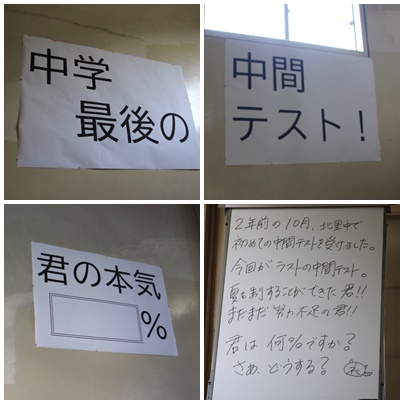 中学
最後の
中間
テスト！
君の本気
%
2年前の10月、北里中で
初めての中間テストを受けました。
今回がラストの中間テスト。
夏を制することができた君!!
まだまだ努力不足の君!!
君は何%ですか?
さあ、どうする?